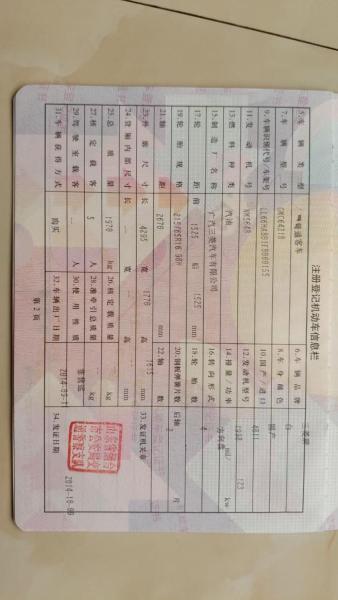 注册登记机动车信息栏
5.车辆类型 小型普通客车 6.车辆品牌 三菱牌
7.车辆型号 GMC6421B 8.车身颜色 白
9.车辆识别代号/车架号 10.国产/进口 国产
11.发动机号 12.发动机型号 4B11
13.燃料种类 汽油 14.排量/功率 1998 ml/ 123 kw
15.制造厂名称 广汽三菱汽车有限公司 16.转向形式 方向盘
17.轮距 前 1525 后 1525 mm 18.轮胎数 4
19.轮胎规格 215/65R16 98H 20.钢板弹簧片数 后轴 片
21.轴距 2670 mm 22.轴数 2
23.外廓尺寸 长 4295 宽 1770 高 1615 mm 33.发证机关章
24.货厢内部尺寸 长 宽 高 mm
25.总质量 1970 kg 26.核定载质量 kg
27.核定载客 5 人 28.准牵引总质量 kg
29.驾驶室载客 人 30.使用性质 非营运
31.车辆获得方式 购买 32.车辆出厂日期 34.发证日期
第2页